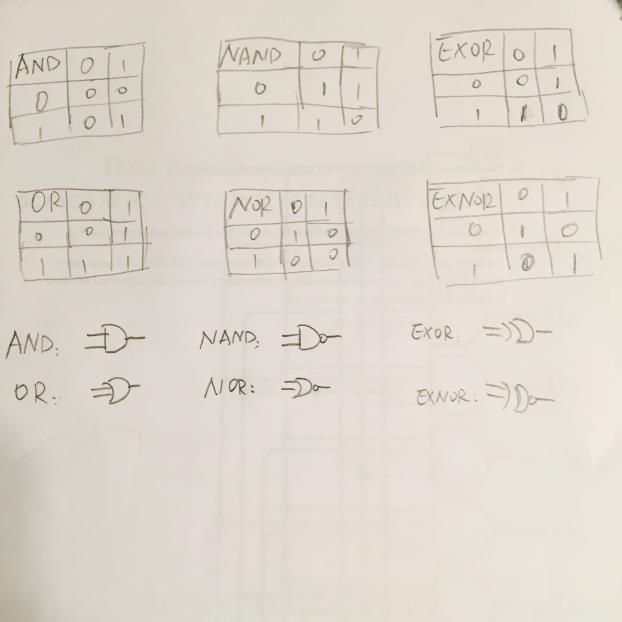 AND 0 1
0 0 0
1 0 1
NAND 0 1
0 1 1
1 1 0
EXOR 0 1
0 0 1
1 1 0
OR 0 1
0 0 1
1 1 1
NOR 0 1
0 1 0
1 0 0
EXNOR 0 1
0 1 0
1 0 1
AND:
NAND:
EXOR:
OR:
NOR:
EXNOR: